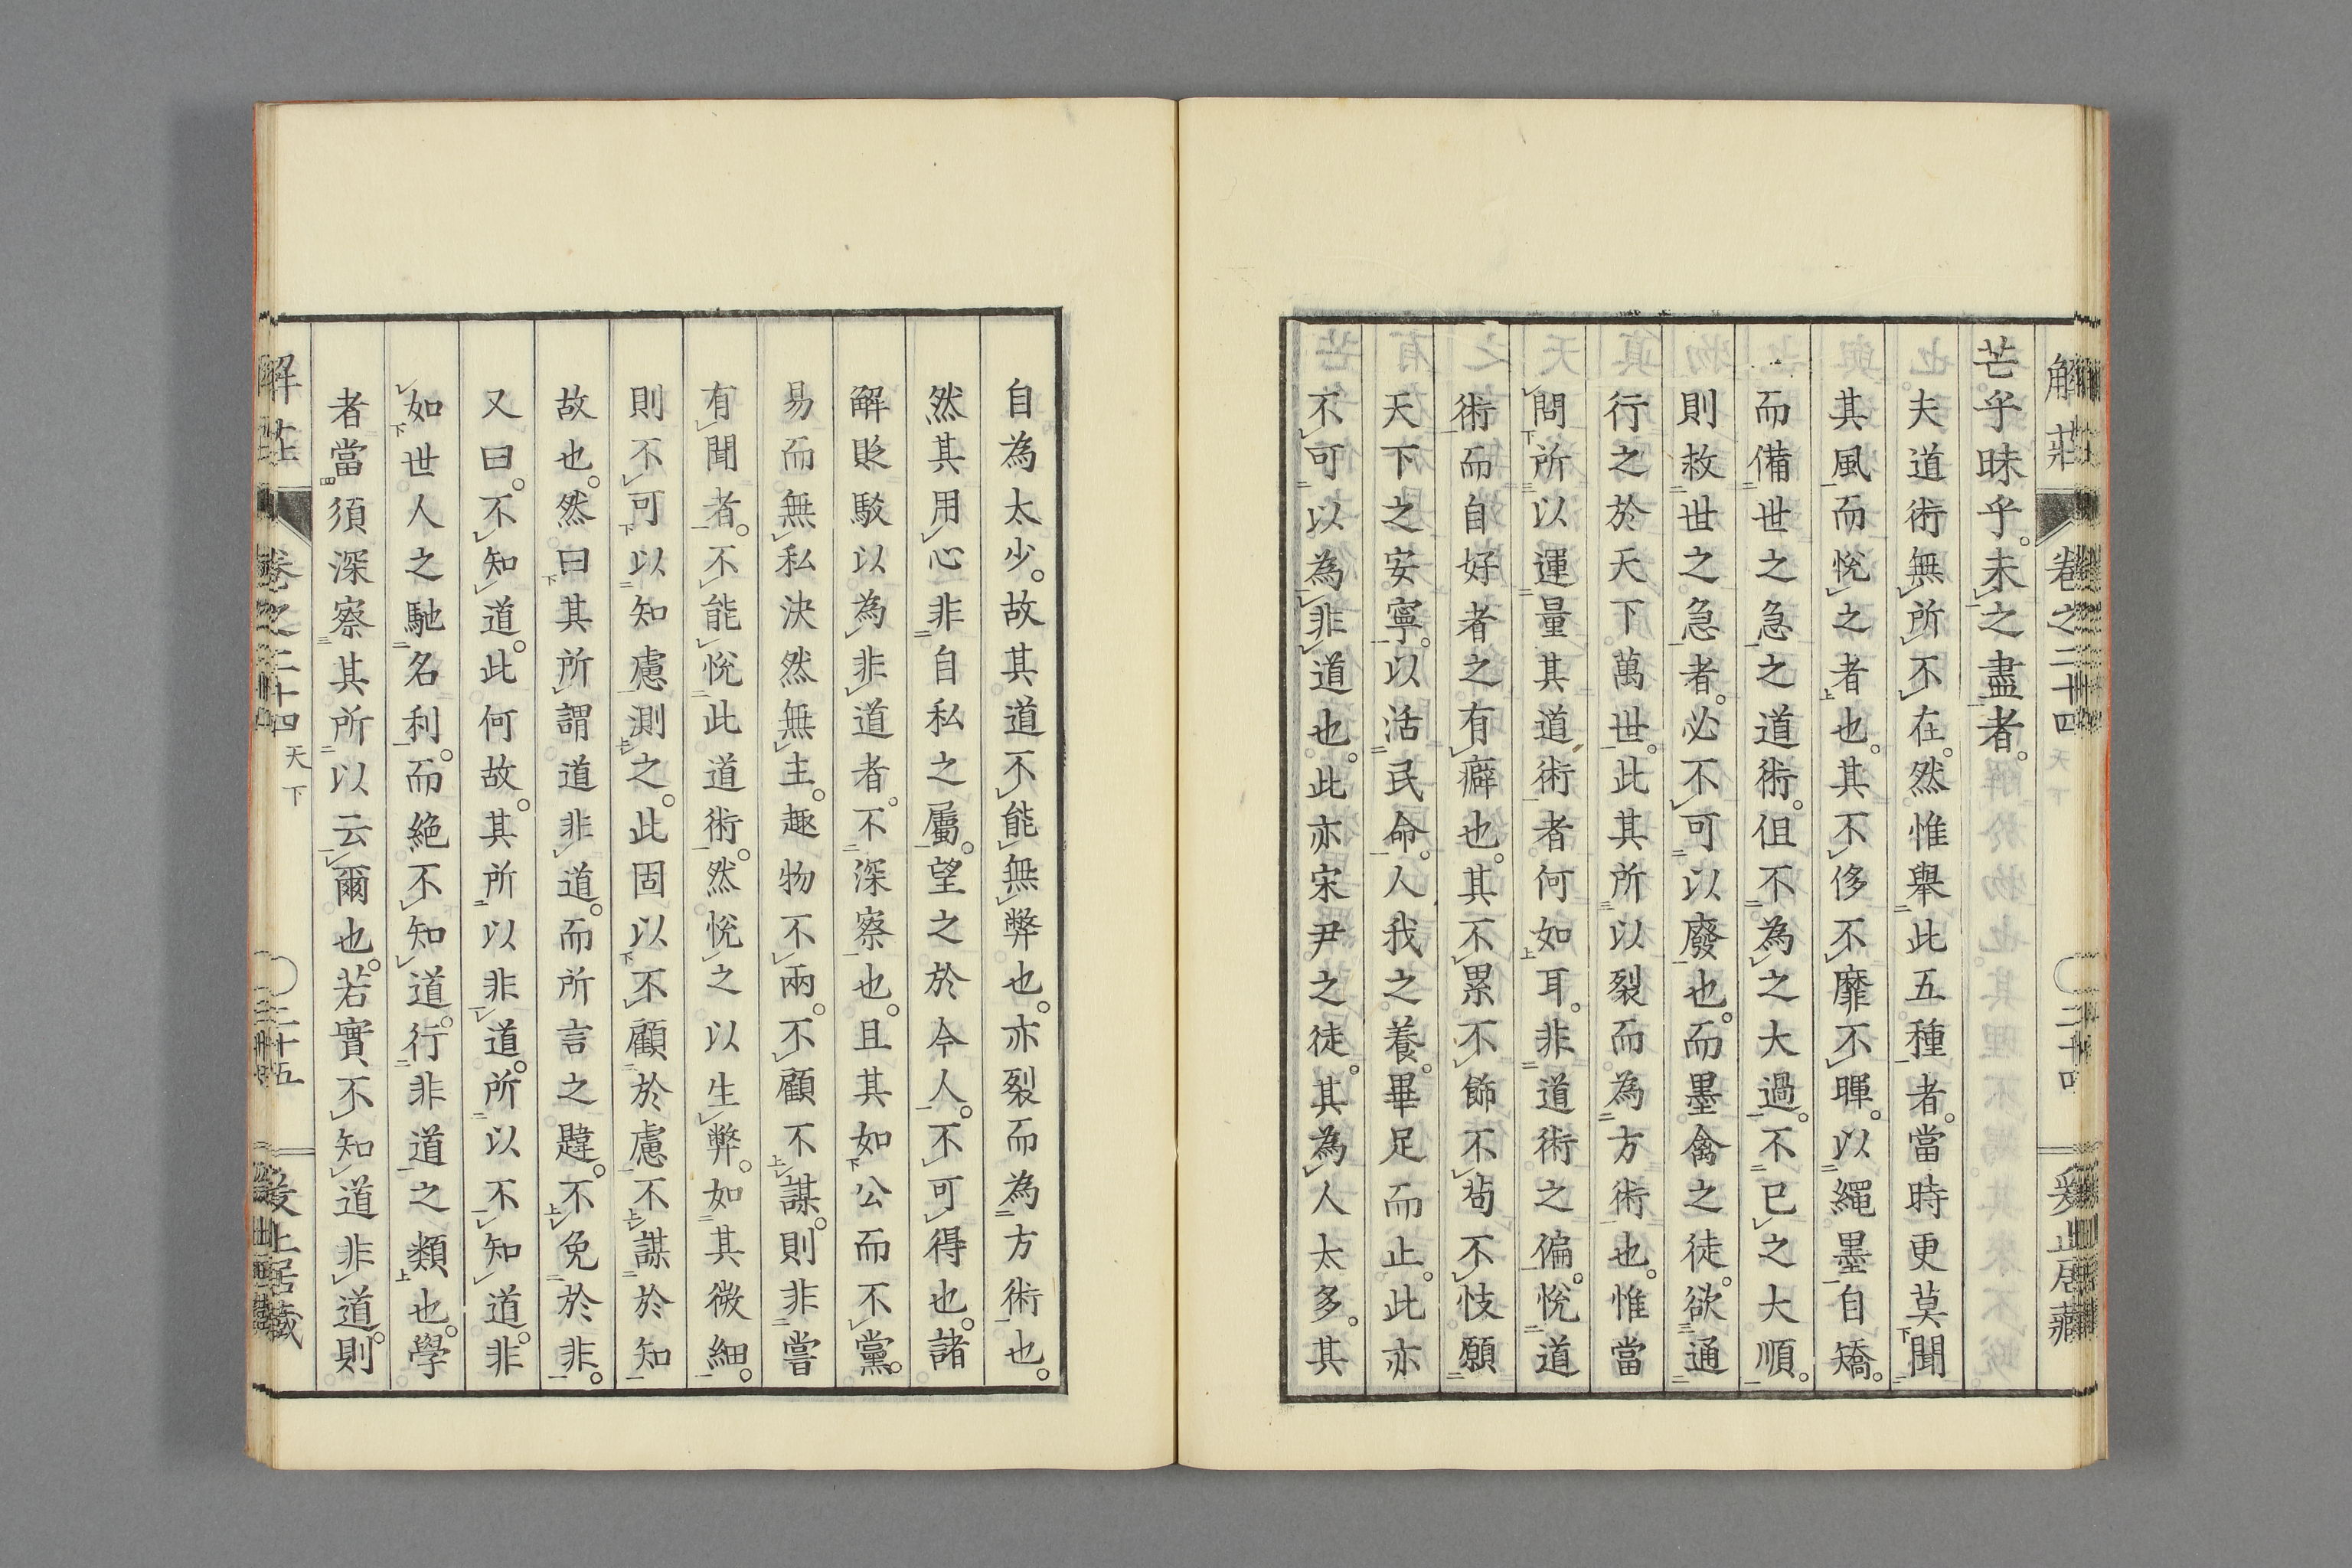 芒乎昧乎。未之盡者。
夫道術無所不在。然惟舉此五種者。當時更莫聞
其風而悅之者也。其不侈不靡不暉。以繩墨自矯。
而備世之急之道術。但不為之大過。不已之大順。
則救世之急者。必不可以廢也。而墨禽之徒。欲通
行之於天下萬世。此其所以裂而為方術也。惟當
問所以運量其道術者何如耳。非道術之偏。悅道
術而自好者之有癖也。其不累不飾不苟不忮願
天下之安寧。以活民命。人我之養。畢足而止。此亦
不可以為非道也。此亦宋尹之徒。其為人太多。其
自為太少。故其道不能無弊也。亦裂而為方術也。
然其用心非自私之屬。望之於今人。不可得也。諸
解貶駁以為非道者。不深察也。且其如公而不黨。
易而無私決然無主。趣物不兩。不顧不謀。則非嘗
有聞者。不能悅此道術。然悅之以生弊。如其微細。
則不可以知慮測之。此固以不顧於慮不謀於知
故也。然曰其所謂道非道。而所言之韙。不免於非。
又曰。不知道。此何故。其所以非道。所以不知道。非
如世人之馳名利。而絕不知道。行非道之類也。學
者當須深察其所以云爾也。若實不知道非道。則
解莊 卷之二十四 天下 二十五